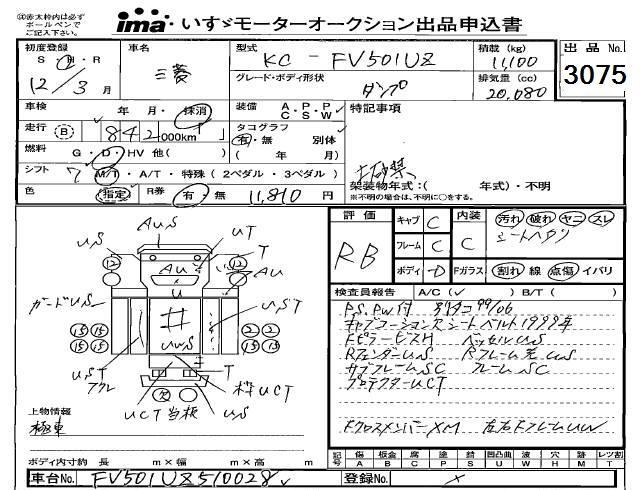 ⊗赤太枠内は必ず
ボールペンで
ご記入下さい。
ima いすゞモーターオークション出品申込書
初度登録 車名 型式 積載 (kg) 出品No.
S・H・R 三菱 KC - FV501UZ 11,100 3075
12/3月 グレード・ボディ形状 ダンプ 排気量 (cc) 20,080
車検 年 月・抹消 装備 A・P・P C・S・W 特記事項
走行 B 842,000km タコグラフ 有・無 別体 土砂禁
燃料 G・D・HV 他( ) ( 年 月)
シフト 7 MT・A/T・特殊(2ペダル・3ペダル) 架装物年式:( 年式)・不明
色 (指定) R券 有・無 11,810 円 ※不明の場合は、不明に○をする。
評価 キャブ C 内装 汚れ 破れ ヤニ スレ
RB フレーム C C シートヘタリ
ボディ D Fガラス 割れ 線 点傷 イバリ
検査員報告 A/C(✓) B/T( )
P.S. P.W付 別タコ99/06
キャブコーションR シートベルト1999年
FピラービスH ベッセルUS
RフェンダーUS
サブフレームSC フレームSC
プロテクターUCT
FクロスメンバーXM 左右FフレームUW
US AUS UT T
12 AU 12 AU
U
ガードUS # UST
UWS
15 15 2 2
15 15 2 2
UST T
アクレ UCT
UCT当板 US
欠
上物情報
極東
ボディ内寸約 長 m×幅 m×高 m
記号 傷 板金 腐 塗 錆 凹凸曲 波 穴 跡 レツ割
A B C P S U W H M T
車台No. FV501UZ510028 登録No. ×